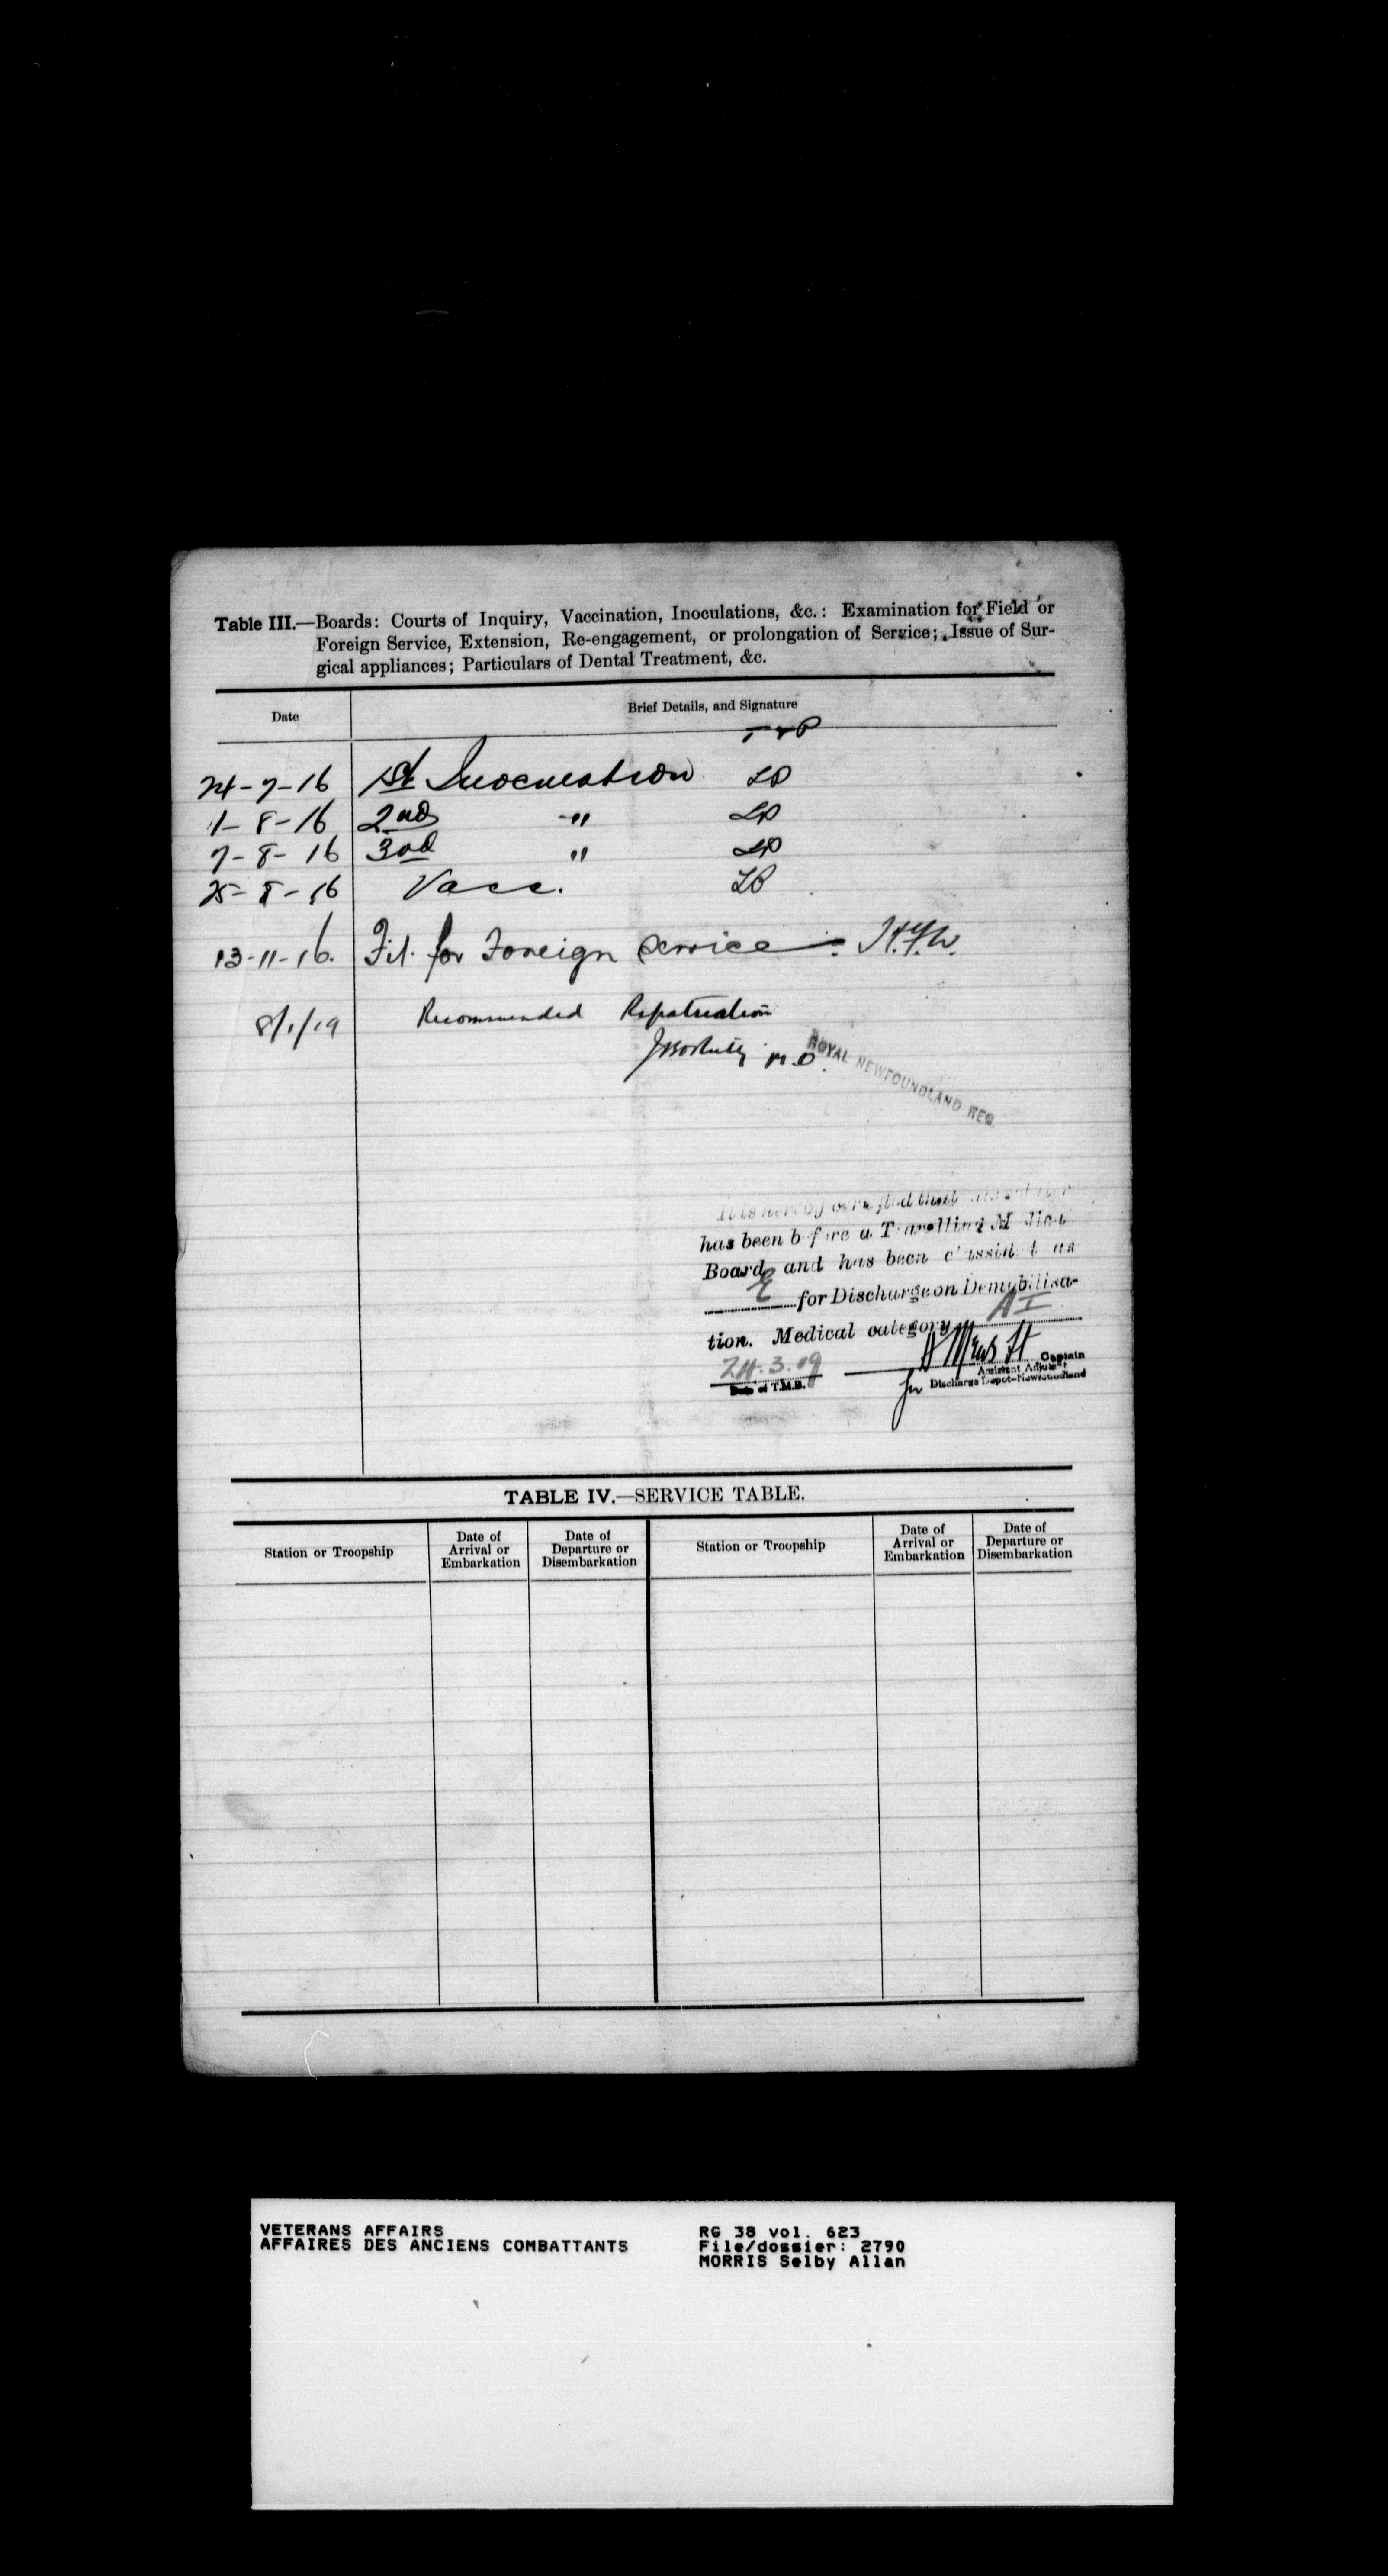 Table III.—Boards: Courts of Inquiry, Vaccination, Inoculations, &c.: Examination for Field or
Foreign Service, Extension, Re-engagement, or prolongation of Service; Issue of Sur-
gical appliances; Particulars of Dental Treatment, &c.
Date Brief Details, and Signature
24-7-16 1st Inoculation LP
1-8-16 2nd " LP
7-8-16 3rd " LP
25-8-16 Vacc. LP
13-11-16. Fit for Foreign Service H.F.W.
8/1/19 Recommended Repatriation
M.D.
ROYAL NEWFOUNDLAND REG.
It is hereby certified that
has been before a Travelling Medical
Board and has been classified as
E for Discharge on Demobilisa-
tion. Medical category A I
24.3.19 Captain
Assistant Adjutant
Date of T.M.B. for Discharge Depot-Newfoundland
TABLE IV.—SERVICE TABLE.
Station or Troopship Date of Arrival or Embarkation Date of Departure or Disembarkation Station or Troopship Date of Arrival or Embarkation Date of Departure or Disembarkation
VETERANS AFFAIRS RG 38 vol. 623
AFFAIRES DES ANCIENS COMBATTANTS File/dossier: 2790
MORRIS Selby Allan